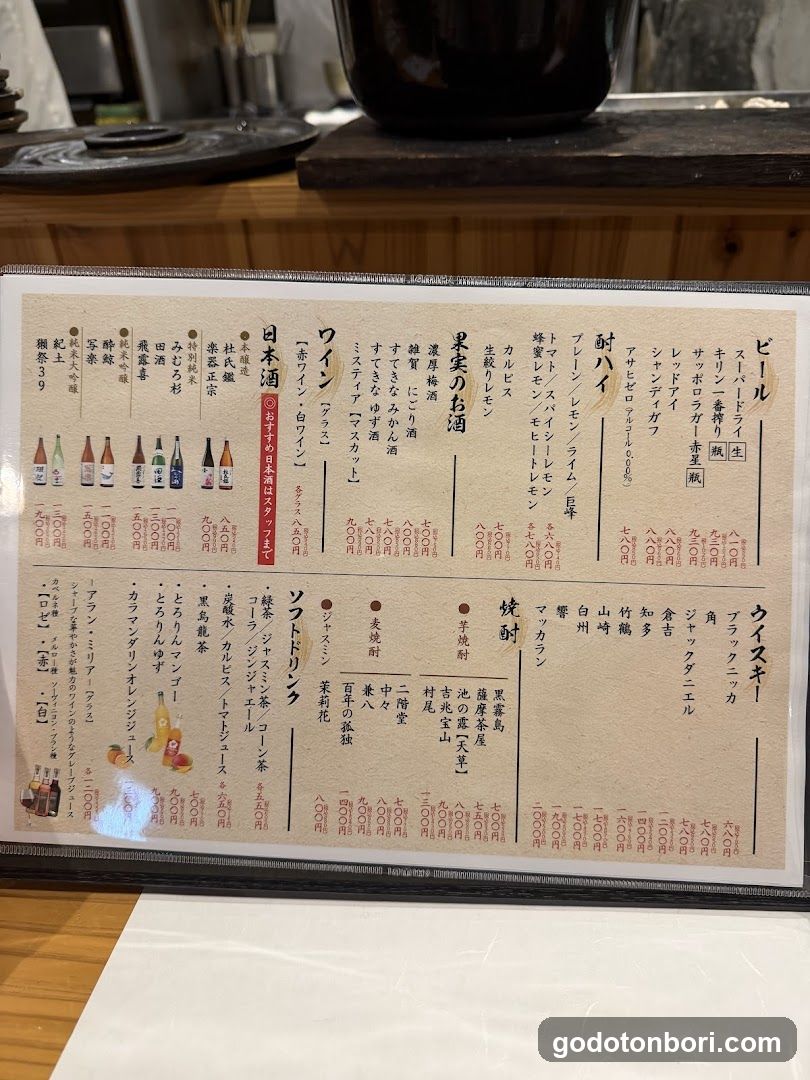 ビール
スーパードライ 生 八一〇円
キリン一番搾り 瓶 九三〇円
サッポロラガー赤星 瓶 九三〇円
レッドアイ 八八〇円
シャンディガフ 八八〇円
アサヒゼロ(アルコール0.00%) 七八〇円
酎ハイ
プレーン/レモン/ライム/巨峰 各六八〇円
トマト/スパイシーレモン
蜂蜜レモン/モヒートレモン 各七八〇円
カルピス 七〇〇円
生絞りレモン 八〇〇円
果実のお酒
濃厚梅酒 七〇〇円
雑賀 にごり酒 八〇〇円
すてきなみかん酒 七八〇円
すてきなゆず酒 七八〇円
ミスティア【マスカット】 九〇〇円
ワイン【グラス】
【赤ワイン・白ワイン】 各グラス 八五〇円
日本酒
◎おすすめ日本酒はスタッフまで
●本醸造
杜氏鑑 八五〇円
楽器正宗 九〇〇円
●特別純米
みむろ杉
田酒 一三〇〇円
飛露喜 一五〇〇円
●純米吟醸
酔鯨 一一〇〇円
写楽 一五〇〇円
●純米大吟醸
紀土 一三〇〇円
獺祭39 一九〇〇円
ウイスキー
ブラックニッカ 六八〇円
角 七八〇円
ジャックダニエル 七八〇円
倉吉 一二〇〇円
知多 一四〇〇円
竹鶴 一六〇〇円
山崎 一七〇〇円
白州 一七〇〇円
響 一九〇〇円
マッカラン 二〇〇〇円
焼酎
●芋焼酎
黒霧島 七〇〇円
薩摩茶屋 七五〇円
池の露【天草】 八〇〇円
吉兆宝山 九〇〇円
村尾 一三〇〇円
●麦焼酎
二階堂 七〇〇円
中々 八〇〇円
兼八 九〇〇円
百年の孤独 一四〇〇円
●ジャスミン
茉莉花 八〇〇円
ソフトドリンク
・緑茶/ジャスミン茶/コーン茶
コーラ/ジンジャエール 各五五〇円
・炭酸水/カルピス/トマトジュース 各六五〇円
・黒烏龍茶 七〇〇円
・とろりんマンゴー 九〇〇円
・とろりんゆず 九〇〇円
・カラマンダリンオレンジジュース
－アラン・ミリアー【グラス】 各一二〇〇円
シャープな華やかさが魅力のワインのようなグレープジュース
カベルネ種 メルロー種 ソーヴィニヨン・ブラン種
・【ロゼ】・【赤】・【白】
godotonbori.com